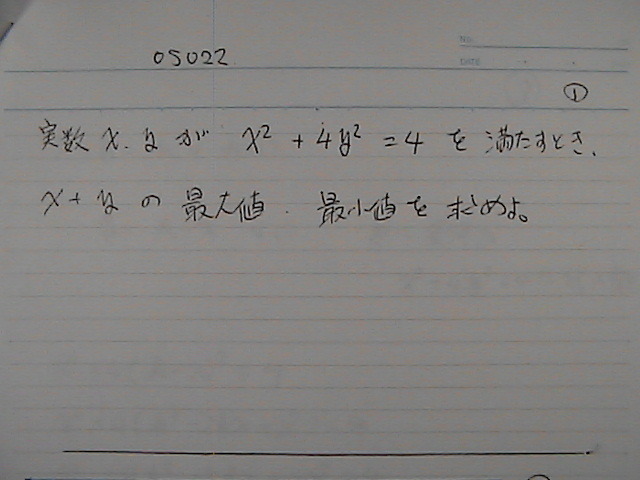 05022
No.
DATE
①
実数 x, y が x² + 4y² = 4 を 満たすとき、
x + y の 最大値、最小値を 求めよ。